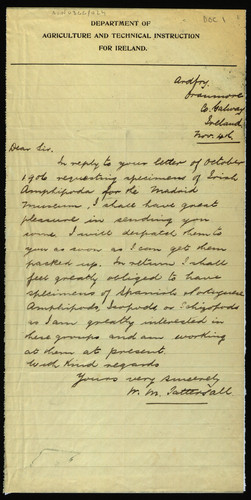 DOC 1
DEPARTMENT OF
AGRICULTURE AND TECHNICAL INSTRUCTION
FOR IRELAND.
Ardfry,
Oranmore
Co. Galway
Ireland
Nov. 4th
Dear Sir.
In reply to your letter of October
1906 requesting specimens of Irish
Amphipoda for the Madrid
Museum, I shall have great
pleasure in sending you
some. I will despatch them to
you as soon as I can get them
packed up. In return I shall
feel greatly obliged to have
specimens of Spanish
Amphipods, Isopods or
as I am greatly interested in
these groups and am working
at them at present.
With Kind regards
Yours very sincerely
W. M. Tattersall